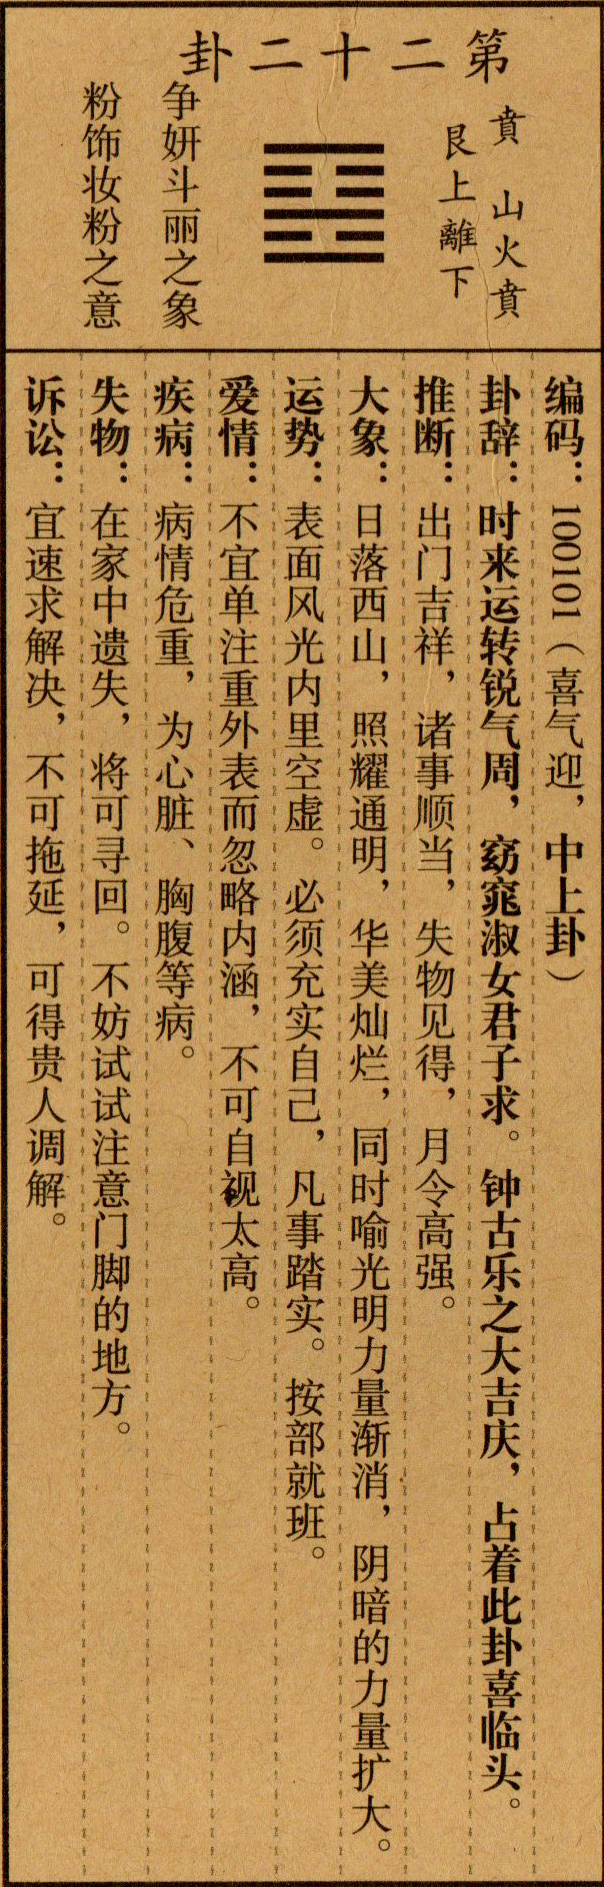 第二十二卦
賁 山火賁
艮上離下
争妍斗丽之象
粉饰妆粉之意
编码：100101（喜气迎，中上卦）
卦辞：时来运转锐气周，窈窕淑女君子求。钟古乐之大吉庆，占着此卦喜临头。
推断：出门吉祥，诸事顺当，失物见得，月令高强。
大象：日落西山，照耀通明，华美灿烂，同时喻光明力量渐消，阴暗的力量扩大。
运势：表面风光内里空虚。必须充实自己，凡事踏实。按部就班。
爱情：不宜单注重外表而忽略内涵，不可自视太高。
疾病：病情危重，为心脏、胸腹等病。
失物：在家中遗失，将可寻回。不妨试试注意门脚的地方。
诉讼：宜速求解决，不可拖延，可得贵人调解。